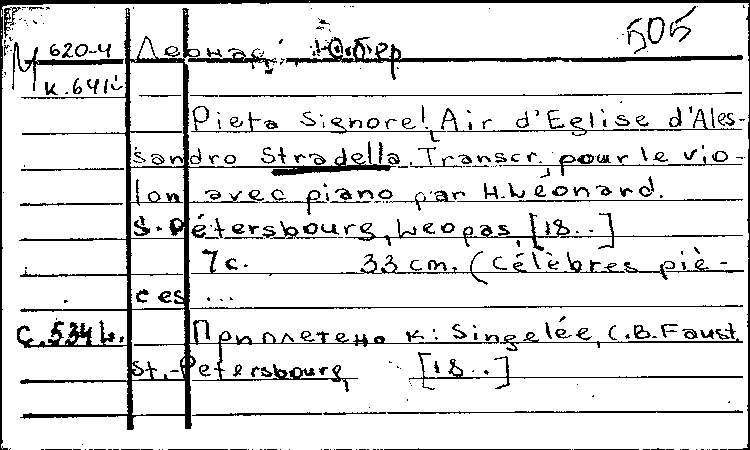 505
М 620-4 Леонар, Юбер
к.641
Pieta Signore!, Air d'Eglise d'Ales-
sandro Stradella. Transcr. pour le vio-
lon avec piano par H. Leonard.
S.-Pétersbourg, Leopas, [18..]
7 с. 33 cm. (Célèbres piè-
ces ...
Приплетено к: Singelée, C.B. Faust.
St.-Petersbourg, [18..]